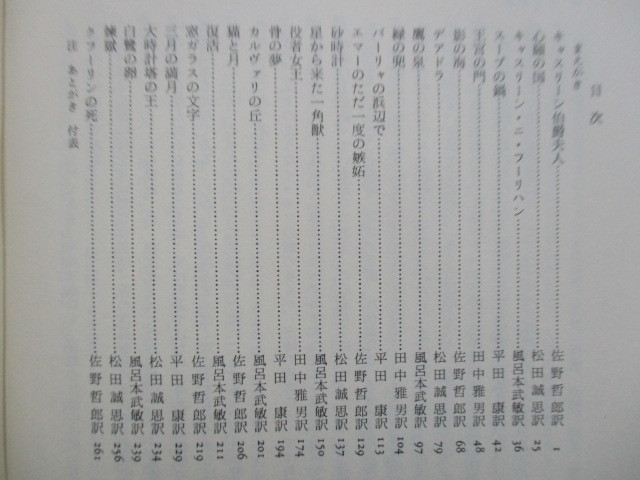 目次
まえがき
キャスリーン伯爵夫人……佐野哲郎訳 1
心願の国……松田誠思訳 25
キャスリーン・ニ・フーリハン……風呂本武敏訳 36
スープの鍋……平田 康訳 42
王宮の門……田中雅男訳 48
影の海……佐野哲郎訳 68
デアドラ……松田誠思訳 79
鷹の泉……風呂本武敏訳 97
緑の兜……田中雅男訳 104
バーリャの浜辺で……平田 康訳 113
エマーのただ一度の嫉妬……佐野哲郎訳 129
砂時計……松田誠思訳 137
星から来た一角獣……風呂本武敏訳 150
役者女王……田中雅男訳 174
骨の夢……平田 康訳 194
カルヴァリの丘……風呂本武敏訳 201
猫と月……佐野哲郎訳 206
復活……風呂本武敏訳 211
窓ガラスの文字……佐野哲郎訳 219
三月の満月……平田 康訳 229
大時計塔の王……松田誠思訳 234
白鷺の卵……風呂本武敏訳 239
煉獄……松田誠思訳 256
クフーリンの死……佐野哲郎訳 261
注 あとがき 付表